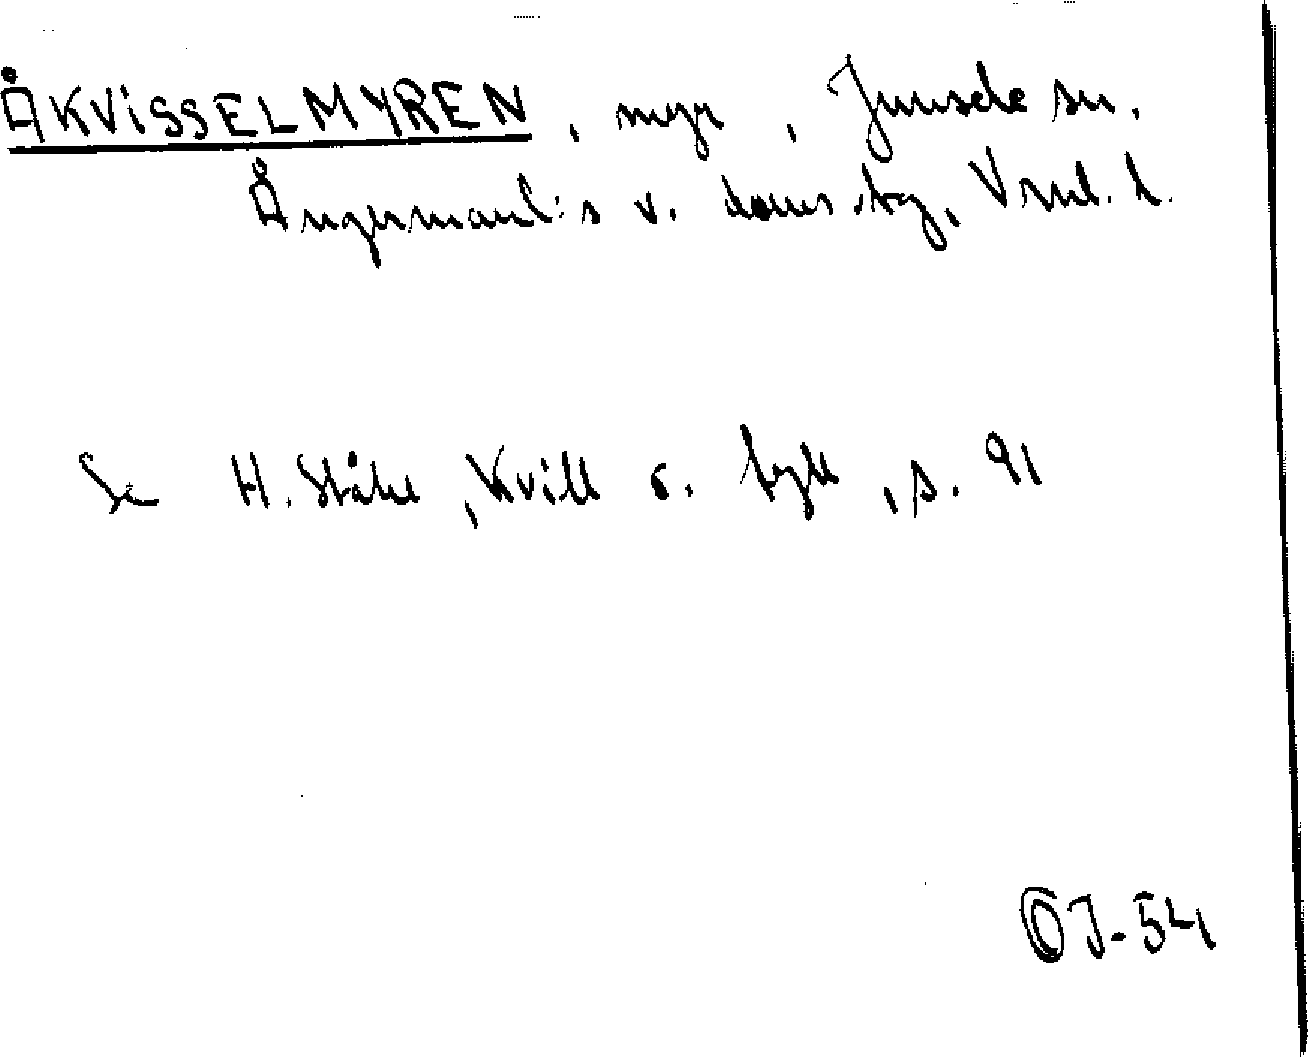 ÅKVISSELMYREN, myr, Junsele sn.
Ångermanl:s v. doms.hg, Vrnl. l.
Se H. Ståhl, Kvill o. tyll, s. 91
OJ-54